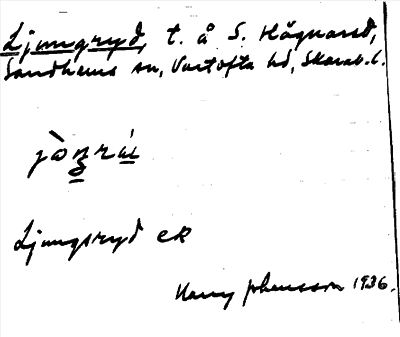 Ljungryd, t. å S. Hågnarud,
Sandhems sn, Vartofta hd, Skarab.l.
Ljungsryd ek
Harry Johansson 1936.